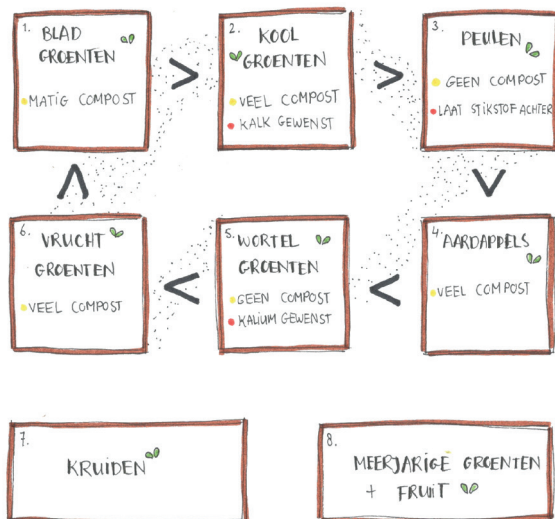 1. BLAD
GROENTEN
MATIG COMPOST
2. KOOL
GROENTEN
VEEL COMPOST
KALK GEWENST
3. PEULEN
GEEN COMPOST
LAAT STIKSTOF ACHTER
4. AARDAPPELS
VEEL COMPOST
5. WORTEL
GROENTEN
GEEN COMPOST
KALIUM GEWENST
6. VRUCHT
GROENTEN
VEEL COMPOST
7.
KRUIDEN
8.
MEERJARIGE GROENTEN
+ FRUIT